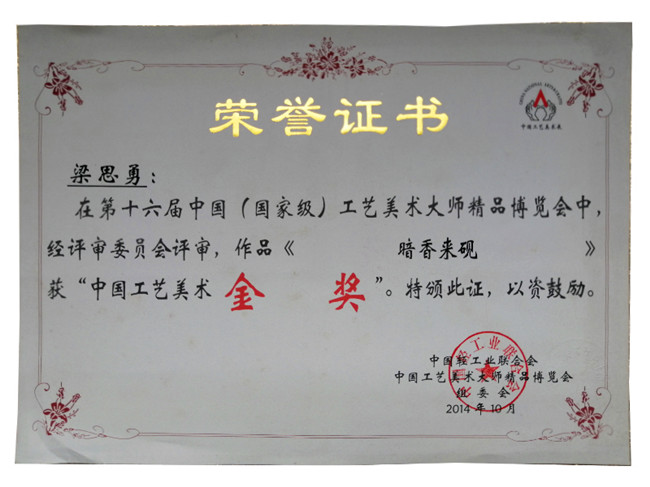 荣誉证书
中国工艺美术展
梁思勇：
在第十六届中国（国家级）工艺美术大师精品博览会中，
经评审委员会评审，作品《 暗香来砚 》
获“中国工艺美术 金 奖 ”。特颁此证，以资鼓励。
中国轻工业联合会
中国工艺美术大师精品博览会
组委会
2014 年 10 月